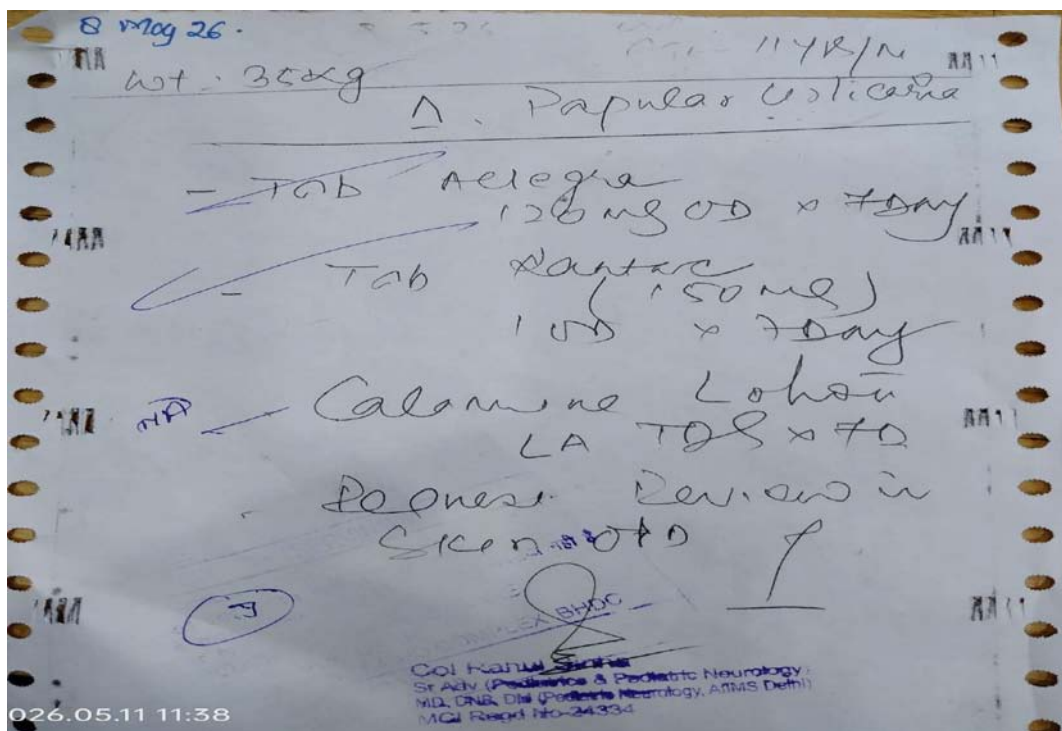 8 May 26.
11 YR/M
Wt. 35kg
Δ. Papular Urticaria
- Tab Allegra
120 mg OD x 7 Day
- Tab Rantac
(150 mg)
1 OD x 7 Day
NA - Calamine Lotion
LA TDS x 7D
Review in
Skin OPD
COMPLEX BHDC
Col Rahul
Sr Adv (Pediatrics & Pediatric Neurology)
MD, DNB, DM (Pediatric Neurology, AIIMS Delhi)
MCI Regd No-24334
026.05.11 11:38